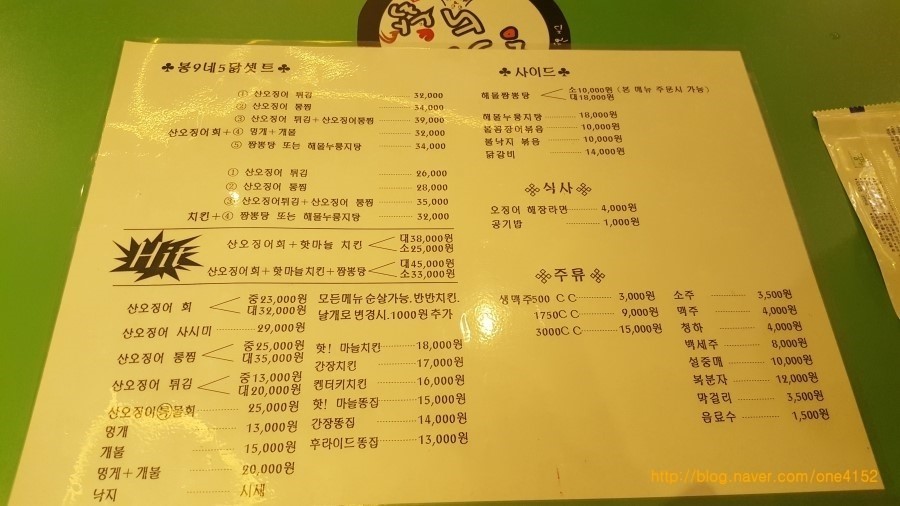 ♣봉9네5닭셋트♣
① 산오징어 튀김 32,000
② 산오징어 통찜 34,000
③ 산오징어 튀김+산오징어통찜 39,000
산오징어회+④ 멍개+개불 32,000
⑤ 짬뽕탕 또는 해물누룽지탕 34,000
① 산오징어 튀김 26,000
② 산오징어 통찜 28,000
③ 산오징어튀김+산오징어 통찜 35,000
치킨+④ 짬뽕탕 또는 해물누룽지탕 32,000
산오징어회+핫마늘 치킨 대38,000원
소25,000원
산오징어회+핫마늘치킨+짬뽕탕 대45,000원
소33,000원
산오징어 회 중23,000원
대32,000원
산오징어 사시미 29,000원
산오징어 통찜 중25,000원
대35,000원
산오징어 튀김 중13,000원
대20,000원
산오징어 물회 25,000원
멍개 13,000원
개불 15,000원
멍게+개불 20,000원
낙지 시세
모든메뉴 순살가능.반반치킨.
날개로 변경시.1000원 추가
핫! 마늘치킨 18,000원
간장치킨 17,000원
켄터키치킨 16,000원
핫! 마늘똥집 15,000원
간장똥집 14,000원
후라이드똥집 13,000원
♣사이드♣
해물짬뽕탕 소10,000원 (봉 메뉴 주문시 가능)
대18,000원
해물누룽지탕 18,000원
불꼼장어볶음 10,000원
불낙지 볶음 10,000원
닭갈비 14,000원
식사
오징어 해장라면 4,000원
공기밥 1,000원
주류
생맥주500 CC 3,000원
1750CC 9,000원
3000CC 15,000원
소주 3,500원
맥주 4,000원
청하 4,000원
백세주 8,000원
설중매 10,000원
복분자 12,000원
막걸리 3,500원
음료수 1,500원
http://blog.naver.com/one4152